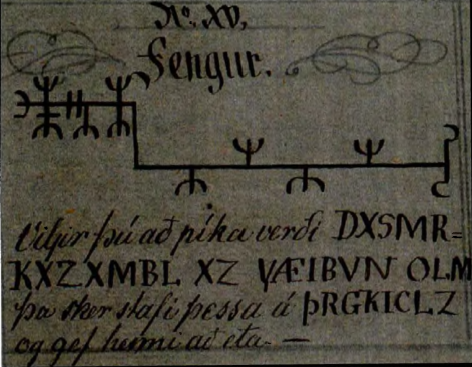 No. XV.
Fengur.
Viljir þú að píka verði DXSMR=
KXZXMBL XZ VÆIBVN OLM
þa sker stafi þessa á ÞRGKICLZ
og gef henni að eta. —